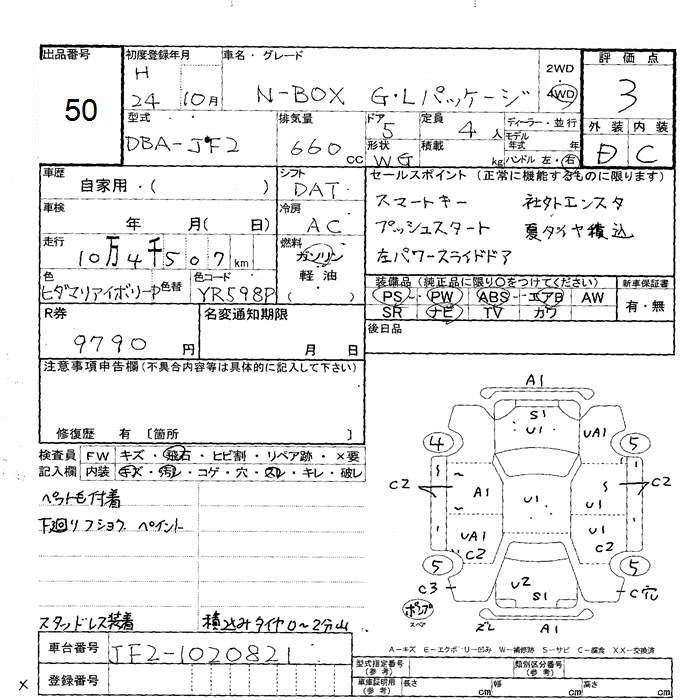 出品番号
50
初度登録年月
H
24 10月
車名・グレード
N-BOX G・Lパッケージ
2WD
4WD
評価点
3
外装 内装
D C
型式
DBA-JF2
排気量
660 cc
ドア
5
形状
WG
定員
4 人
積載
kg
ディーラー・並行
モデル
年式 年
ハンドル 左・右
車歴
自家用・( )
シフト
DAT
セールスポイント (正常に機能するものに限ります)
スマートキー 社外エンスタ
プッシュスタート 夏タイヤ積込
左パワースライドドア
車検
年 月( 日)
冷房
AC
走行
10万4千507km
燃料
ガソリン
軽油
( )
色
ヒダマリアイボリーP
色替
色コード
YR598P
装備品 (純正品に限り○をつけてください)
PS・PW・ABS・エアB AW
SR ナビ TV カワ
新車保証書
有・無
R券
9790 円
名変通知期限
月 日
後日品
注意事項申告欄 (不具合内容等は具体的に記入して下さい)
修復歴 有 〔箇所 〕
検査員
記入欄
FW キズ・飛石・ヒビ割・リペア跡・×要
内装 キズ・汚れ・コゲ・穴・スレ・キレ・破レ
ペット毛付着
下廻りフショク ペイント
スタッドレス装着 積込みタイヤ0~2分山
A1
S1
U1
UA1
4
5
C2
A1
U1
U1
C2
UA1
C2
C2
5
5
C3
U2
S1
C穴
ズレ
A1
A-キズ E-エクボ U-凹み W-補修跡 S-サビ C-腐食 XX-交換済
車台番号
JF2-1020821
登録番号
型式指定番号
(参考)
類別区分番号
(参考)
車庫証明用
(参考)
長さ cm 幅 cm 高さ cm
×